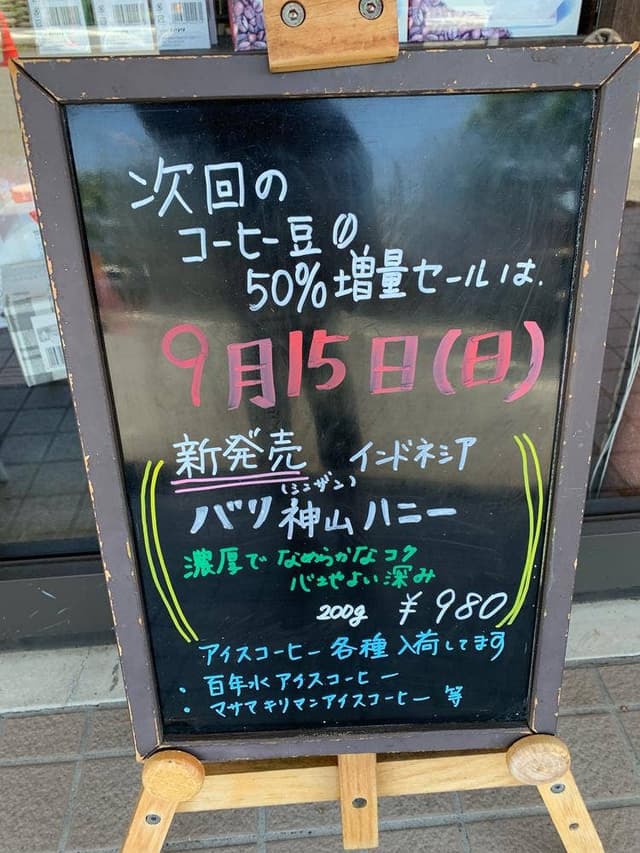 次回の
コーヒー豆の
50%増量セールは.
9月15日(日)
新発売 インドネシア
(シンザン)
バリ神山ハニー
濃厚でなめらかなコク
心地よい深み
200g ¥980
アイスコーヒー各種入荷してます
・百年水アイスコーヒー
・マサマキリマンアイスコーヒー 等